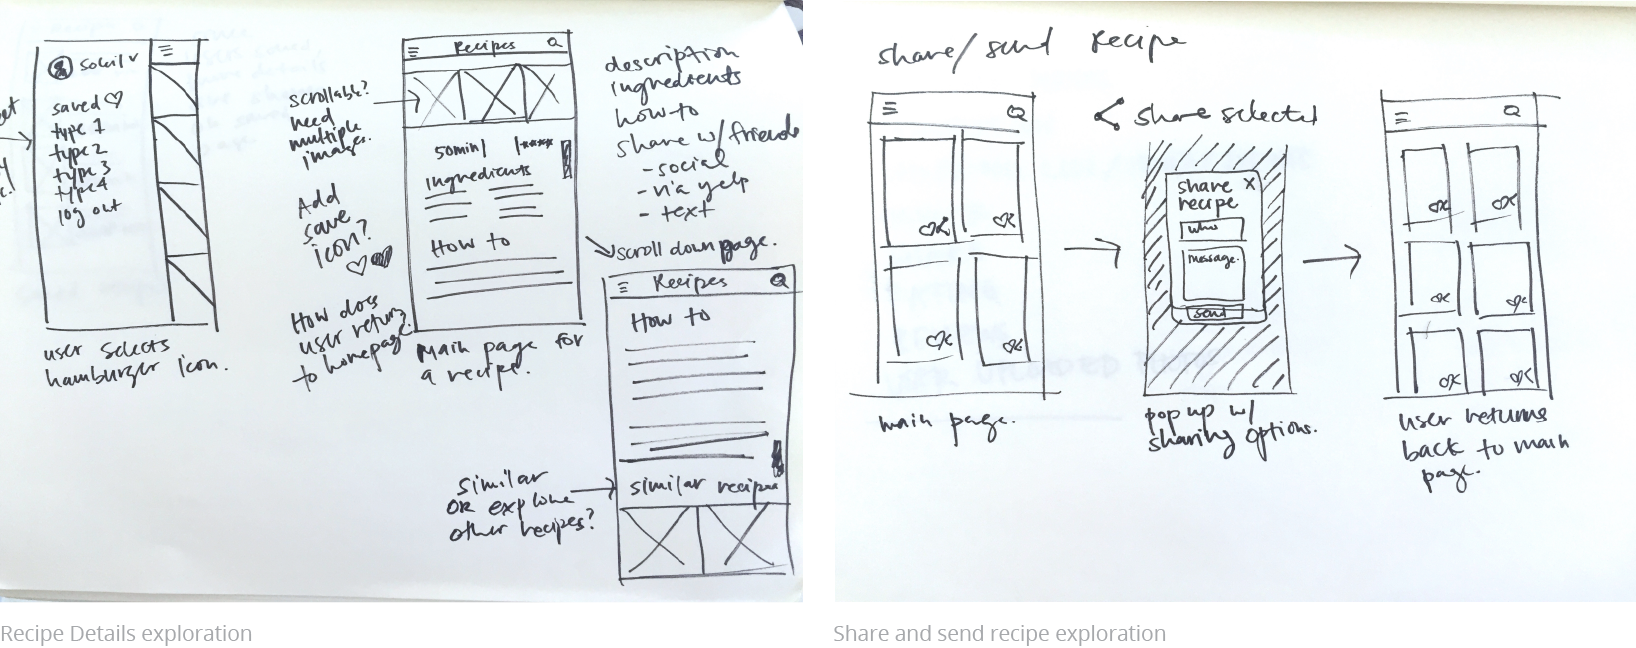 saved
type 1
type 2
type 3
type 4
log out
user selects
hamburger icon.
scrollable?
need
multiple
images.
Add
save
icon?
How does
user return
to homepage?
Recipes
50min
Ingredients
How to
Main page for
a recipe.
description
ingredients
how-to
share w/ friends
- social
- via yelp
- text
scroll down page.
Recipes
How to
similar recipes
similar
or explore
other recipes?
Recipe Details exploration
share/send Recipe
main page.
share selected
share X
recipe
who
message.
send
pop up w/
sharing options.
user returns
back to main
page.
Share and send recipe exploration